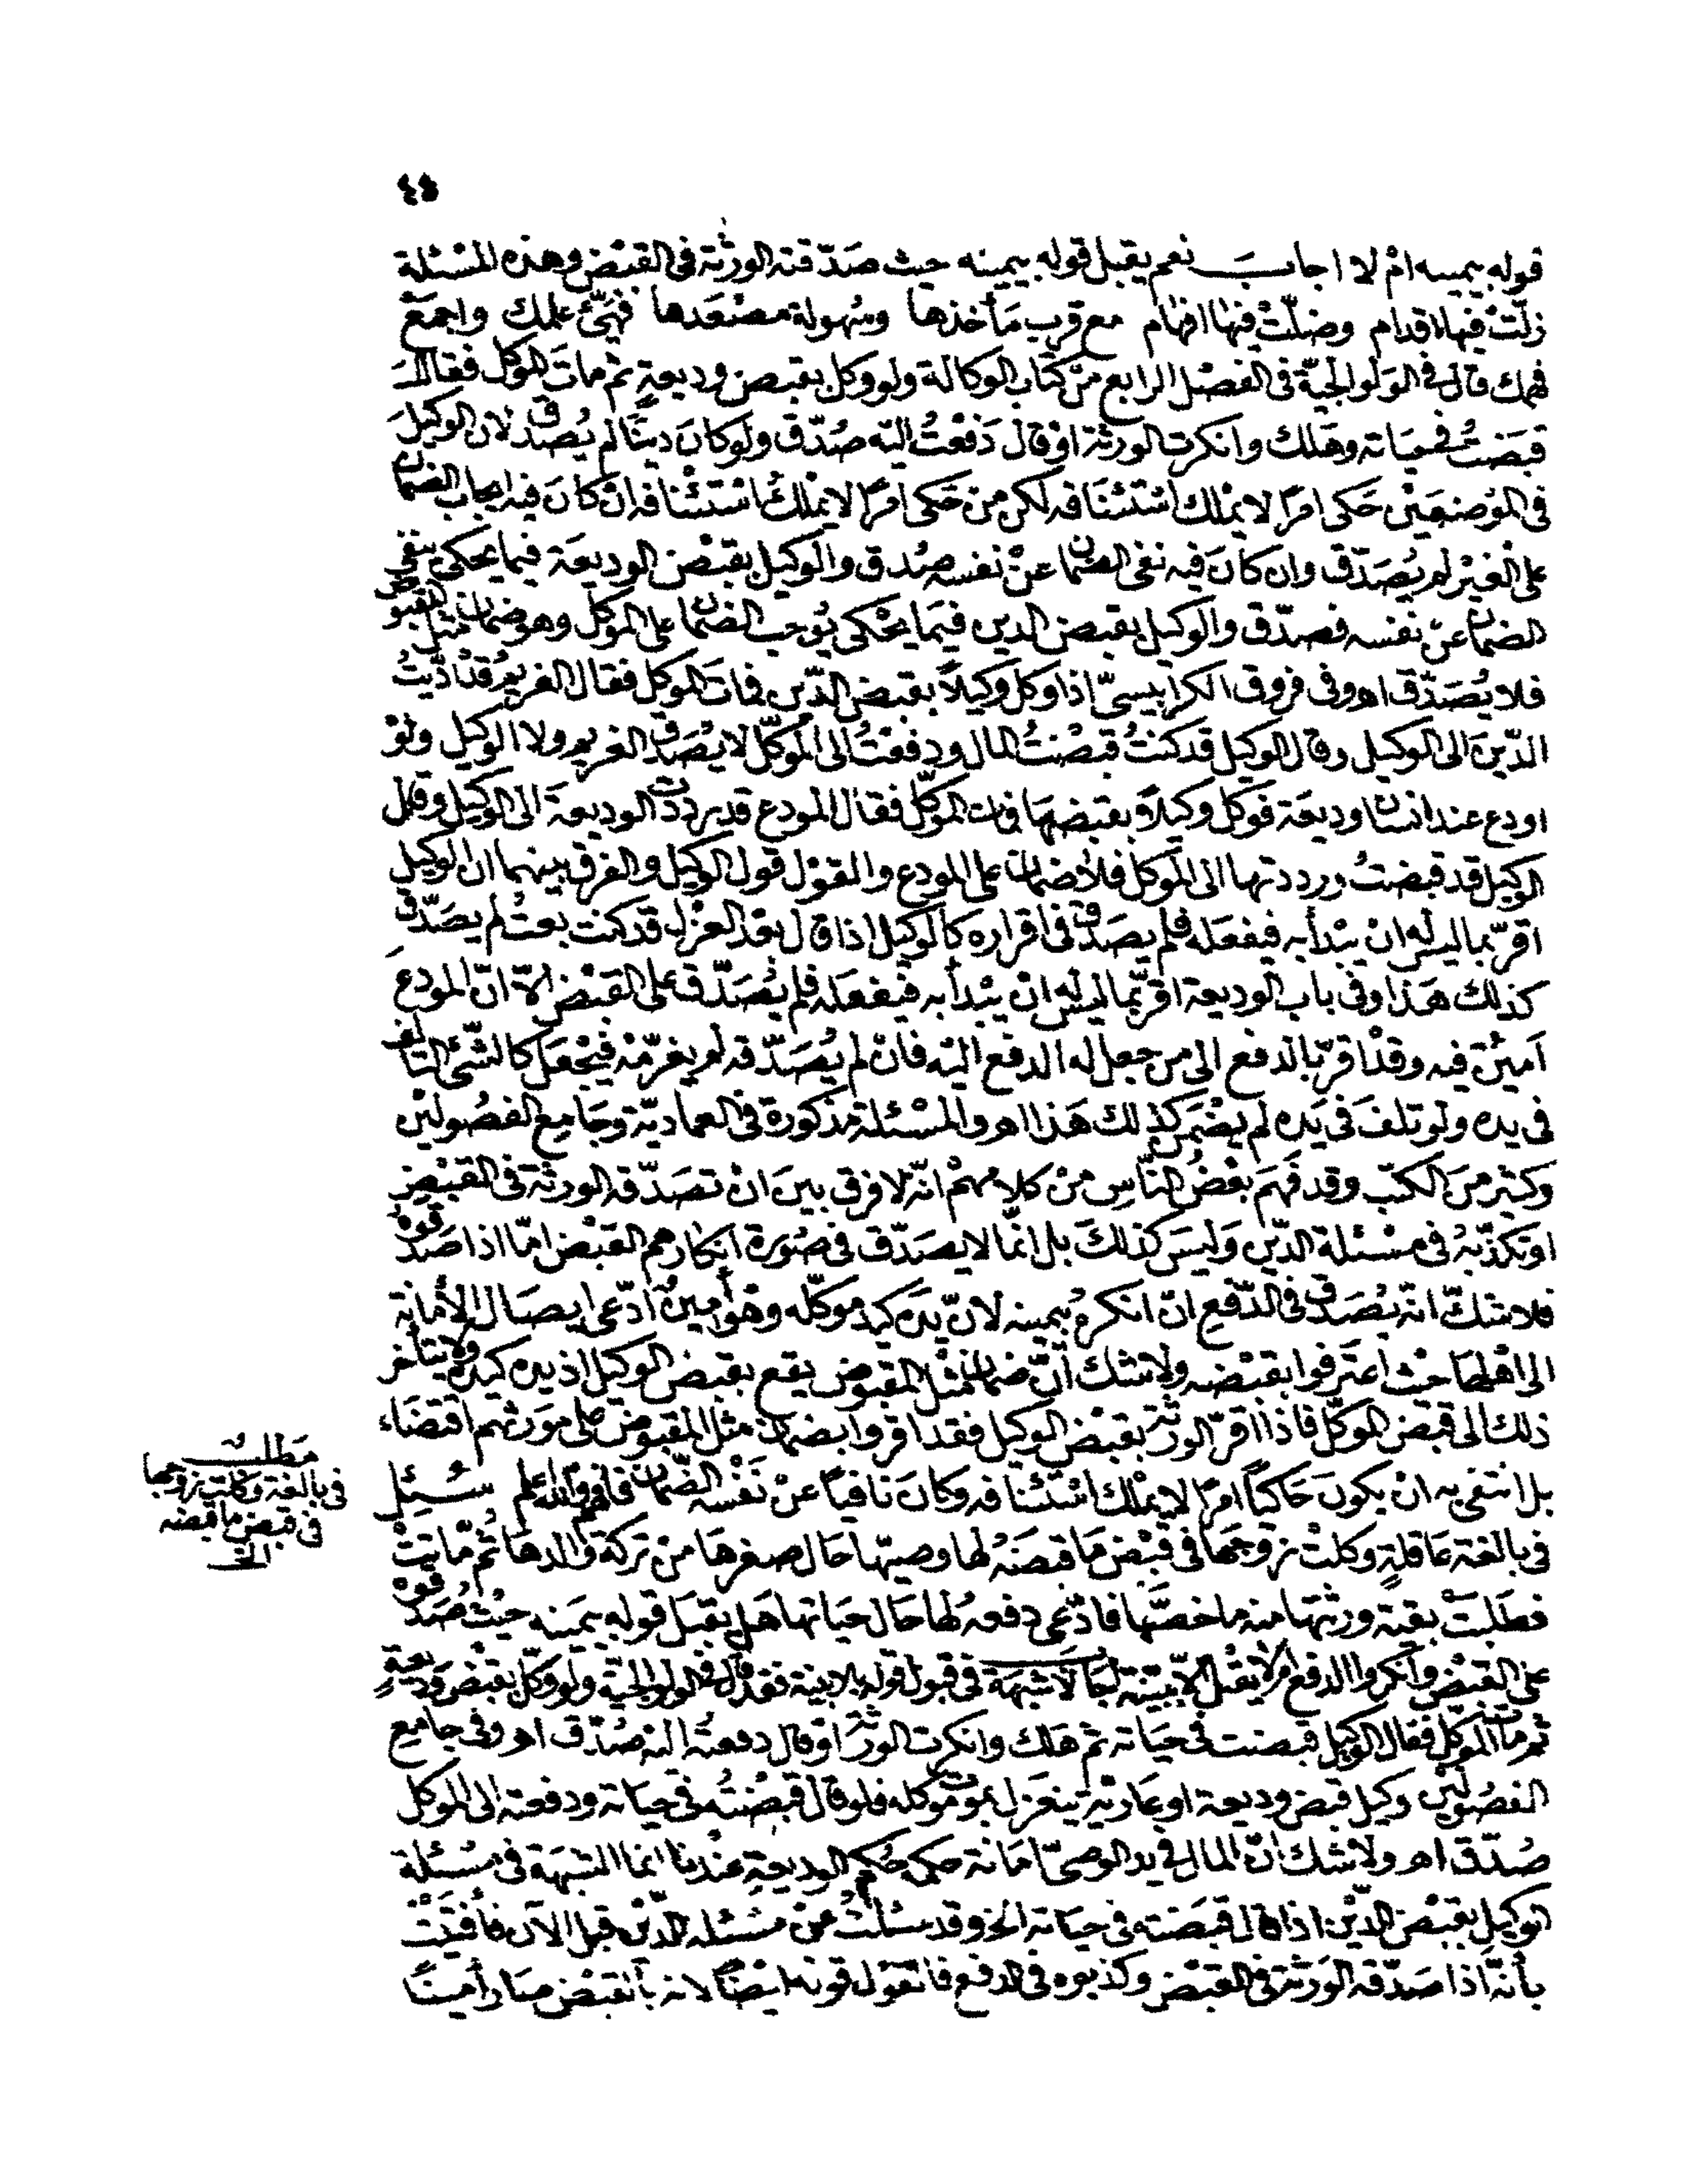 ٤٥
قوله بيمينه ام لا اجاب نعم يقبل قوله بيمينه حيث صدقته الورثة فى القبض وهذه المسئلة
زلّتْ فيها اقدام وضلّتْ فيها افهام مع قرب مَأخذها وسُهولة مصْعَدها فهَيّئ علمك واجمَعْ
فهمك قال فى الوَلوالجيّة فى الفصْل الرابع منْ كتاب الوكالة ولو وكل بقبض وديعةٍ ثم ماتَ الموكل فقال
قبَضتُ فى حياته وهَلك وانكرت الورثة اوْ قال دَفعْتُ اليْه صُدّق ولو كانَ دينًا لم يُصدق لان الوكيلَ
فى الموْضعَيْن حَكى امرًا لا يمْلك اسْتئنَافه لكن من حَكى امرًا لا يمْلكُ اسْتئنافه انْ كانَ فيه ايجاب الضمان
على الغيْر لم يُصَدّق وان كانَ فيه نفى الضمان عنْ نفسه صُدق والوكيل بقبْض الوديعَة فيما يحكى ينفى
الضمان عنْ نفسه فصدّق والوكيل بقبض الدين فيمَا يحْكى يُوجب الضمان على الموكل وهو ضمان مثل المقبوض
فلا يُصَدّق اهـ وفى فروق الكرابيسىّ اذا وكل وكيلاً بقبض الدّين فمات الموكل فقال الغريمُ قدْ ادّيتُ
الدّينَ الى الوكيل وقال الوكيل قد كنتُ قبضْتُ المال ودفعْتُ الى الموَكّل لا يُصَدق الغريم ولا الوكيل ولوْ
اودع عند انسان وديعَة فوكل وكيلاً بقبضهَا فمات الموَكّل فقال المودع قد رددت الوديعَة الى الوكيل وقال
الوكيل قد قبضتُ ورددتها الى الموكل فلا ضمان على المودع والقوْل قول الوكيل والفرق بينهما ان الوكيل
اقرّ بما ليس له انْ يبْدأ به فيفعَله فلم يصَدق فى اقراره كالوكيل اذا قال بعْد العزْل قد كنت بعتُ لم يصَدّق
كذلك هَذا وفى باب الوديعة اقرّ بما ليس له انْ يبْدأ به فيفعَله فلم يُصَدّق على القبْض الاّ انّ المودعَ
اَمينٌ فيه وقدْ اقرّ بالدفع الى من جعل له الدفع اليْه فانْ لم يُصَدّقه لم يغرّمْه فيُجْعَل كالشّئ التالف
فى يده ولو تلفَ فى يَده لم يضْمن كذلك هَذا اهـ والمسْئلة مذكورة فى العماديّة وجَامع الفصُوليْن
وكثير منَ الكتب وقد فهَم بعْضُ النّاس منْ كلامهمْ انّه لا فرق بينَ انْ تصَدّقه الورثة فى القبْض
او تكذّبهُ فى مسْئلة الدّين وَليسَ كذلكَ بل انّما لا يصَدّق فى صُورة انكارهم القبْض امّا اذا صَدقوه
فلا شكّ انّه يُصَدق فى الدّفع انْ انكرهُ بيمينه لانّ يدَه كيد موكّله وهوَ أمينٌ ادّعى ايصَال الأمانة
الى اهْلهَا حيْث اعتَرفوا بقبْضه ولا شك أنّ ضمان مثْل المقبوض يقع بقبض الوكيل اذ يده كيده ولا يتأخر
ذلك الى قبض الموكّل فاذا اقرّ الورثة بقبْض الوكيل فقد اقروا بضمان مثل المقبوض على مورثهم اقتضَاء
بل انتفى به انْ يكونَ حَاكيًا امرًا لا يمْلك اسْتئنافه وكانَ نافيًا عنْ نَفْسه الضّمان فافهم والله اعلم سُئِل
فى بالغة عَاقلةٍ وكلتْ زوجهَا فى قبْض مَا قبضَهُ لها وصيّها حَال صغرهَا منْ تركة والدهَا ثمّ ماتتْ
فطلبَتْ بقية ورثتهَا منه ما خصّهَا فادّعى دفعهُ لها حَال حيَاتها هَل يقبَل قوله بيَمينه حيْثُ صَدقوه
على القبْض وانكروا الدفع ام لا يقْبل الاّ ببيّنة اجَابَ لا شبْهَة فى قبول قوله بلا بينة فقد قال فى الولوالجيّة ولو وكّل بقبْض وَديعَةٍ
ثم مات الموكّل فقال الوكيل قبضت فى حيَاته ثم هَلك وانكرت الورثة اوْ قال دفعتهُ اليْه صُدّق اهـ وفى جامع
الفصُولين وكيل قبض وديعة او عَاريّة ينعَزل بموت موكله فلو قال قبضْتُه فى حيَاته ودفعته الى الموكل
صُدّق اهـ ولا شك انّ المال فى يد الوصىّ امَانة حكمه حُكم الوديعة عنْدنا انما الشبْهَة فى مسْئلة
الوكيل بقبْض الدّيْن اذا قال قبَضته فى حيَاته الخ وقد سئلتُ عنْ مسْئله الدّين قبل الآن فأفتيْتُ
بأنّه اذا صَدّقه الورثة فى القبْض وكذبوه فى الدفع فالقول قوله ايْضًا لانه بالقبْض صَار أمينًا
مَطلبُ
فى بالغة وكلت زوجها
فى قبض ما قبضه
الخ